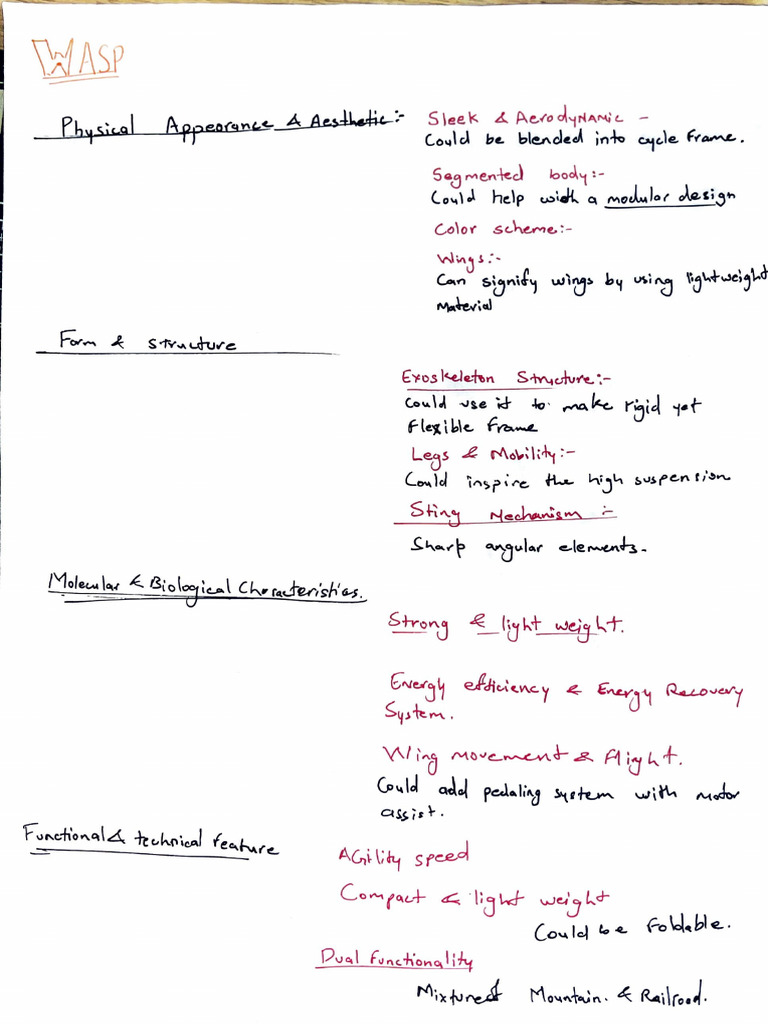 WASP
Physical Appearance & Aesthetic:-
Sleek & Aerodynamic -
Could be blended into cycle frame.
Segmented body:-
Could help with a modular design
Color scheme:-
Wings:-
Can signify wings by using lightweight
Material
Form & structure
Exoskeleton Structure:-
Could use it to make rigid yet
Flexible Frame
Legs & Mobility:-
Could inspire the high suspension
Sting Mechanism :-
Sharp angular elements.
Molecular & Biological Characteristics.
Strong & light weight.
Energy efficiency & Energy Recovery
System.
Wing movement & Flight.
Could add pedaling system with motor
assist.
Functional & technical feature
Agility speed
Compact & light weight
Could be Foldable.
Dual Functionality
Mixture of Mountain. & Railroad.